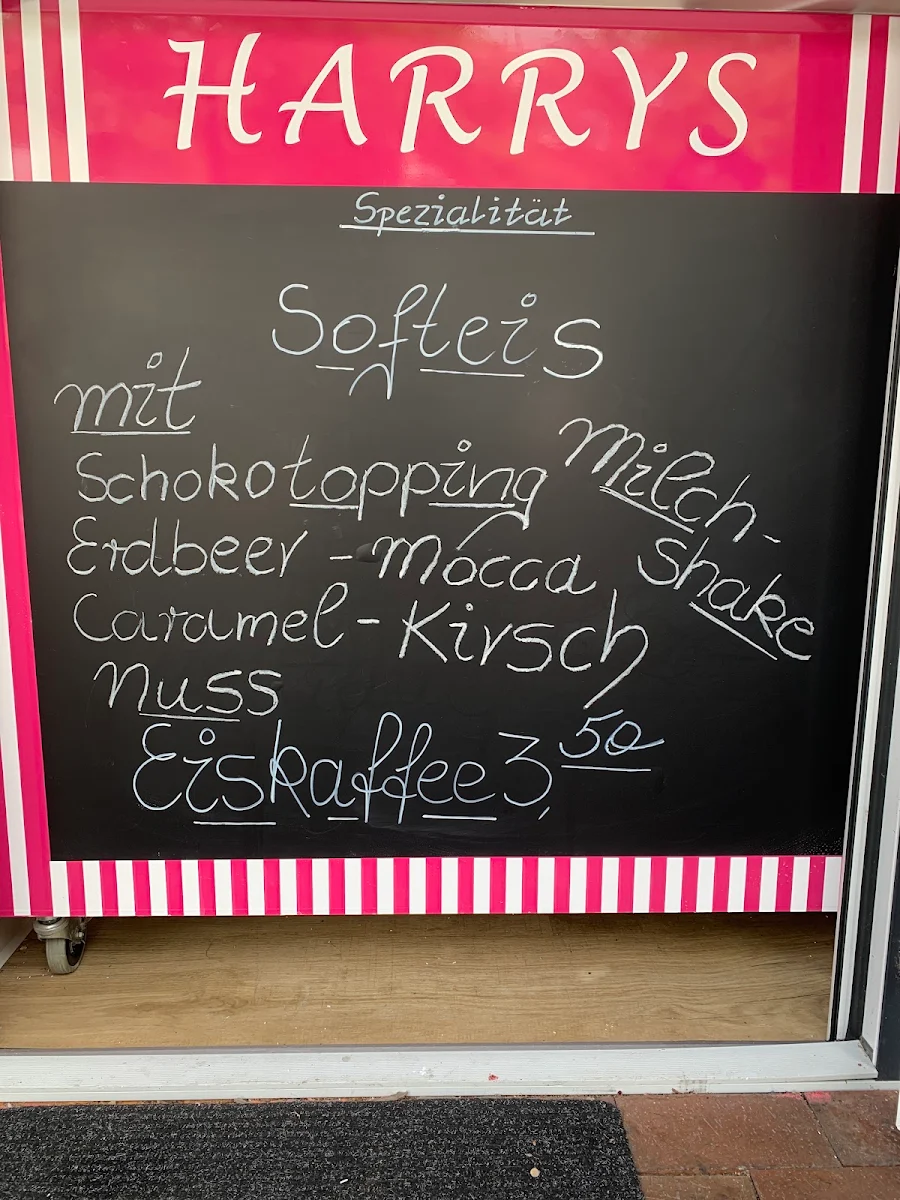 HARRYS
Spezialität
Softeis
mit
Schokotopping
Erdbeer - Mocca
Caramel - Kirsch
Nuss
Milch-
Shake
Eiskaffee 3,50